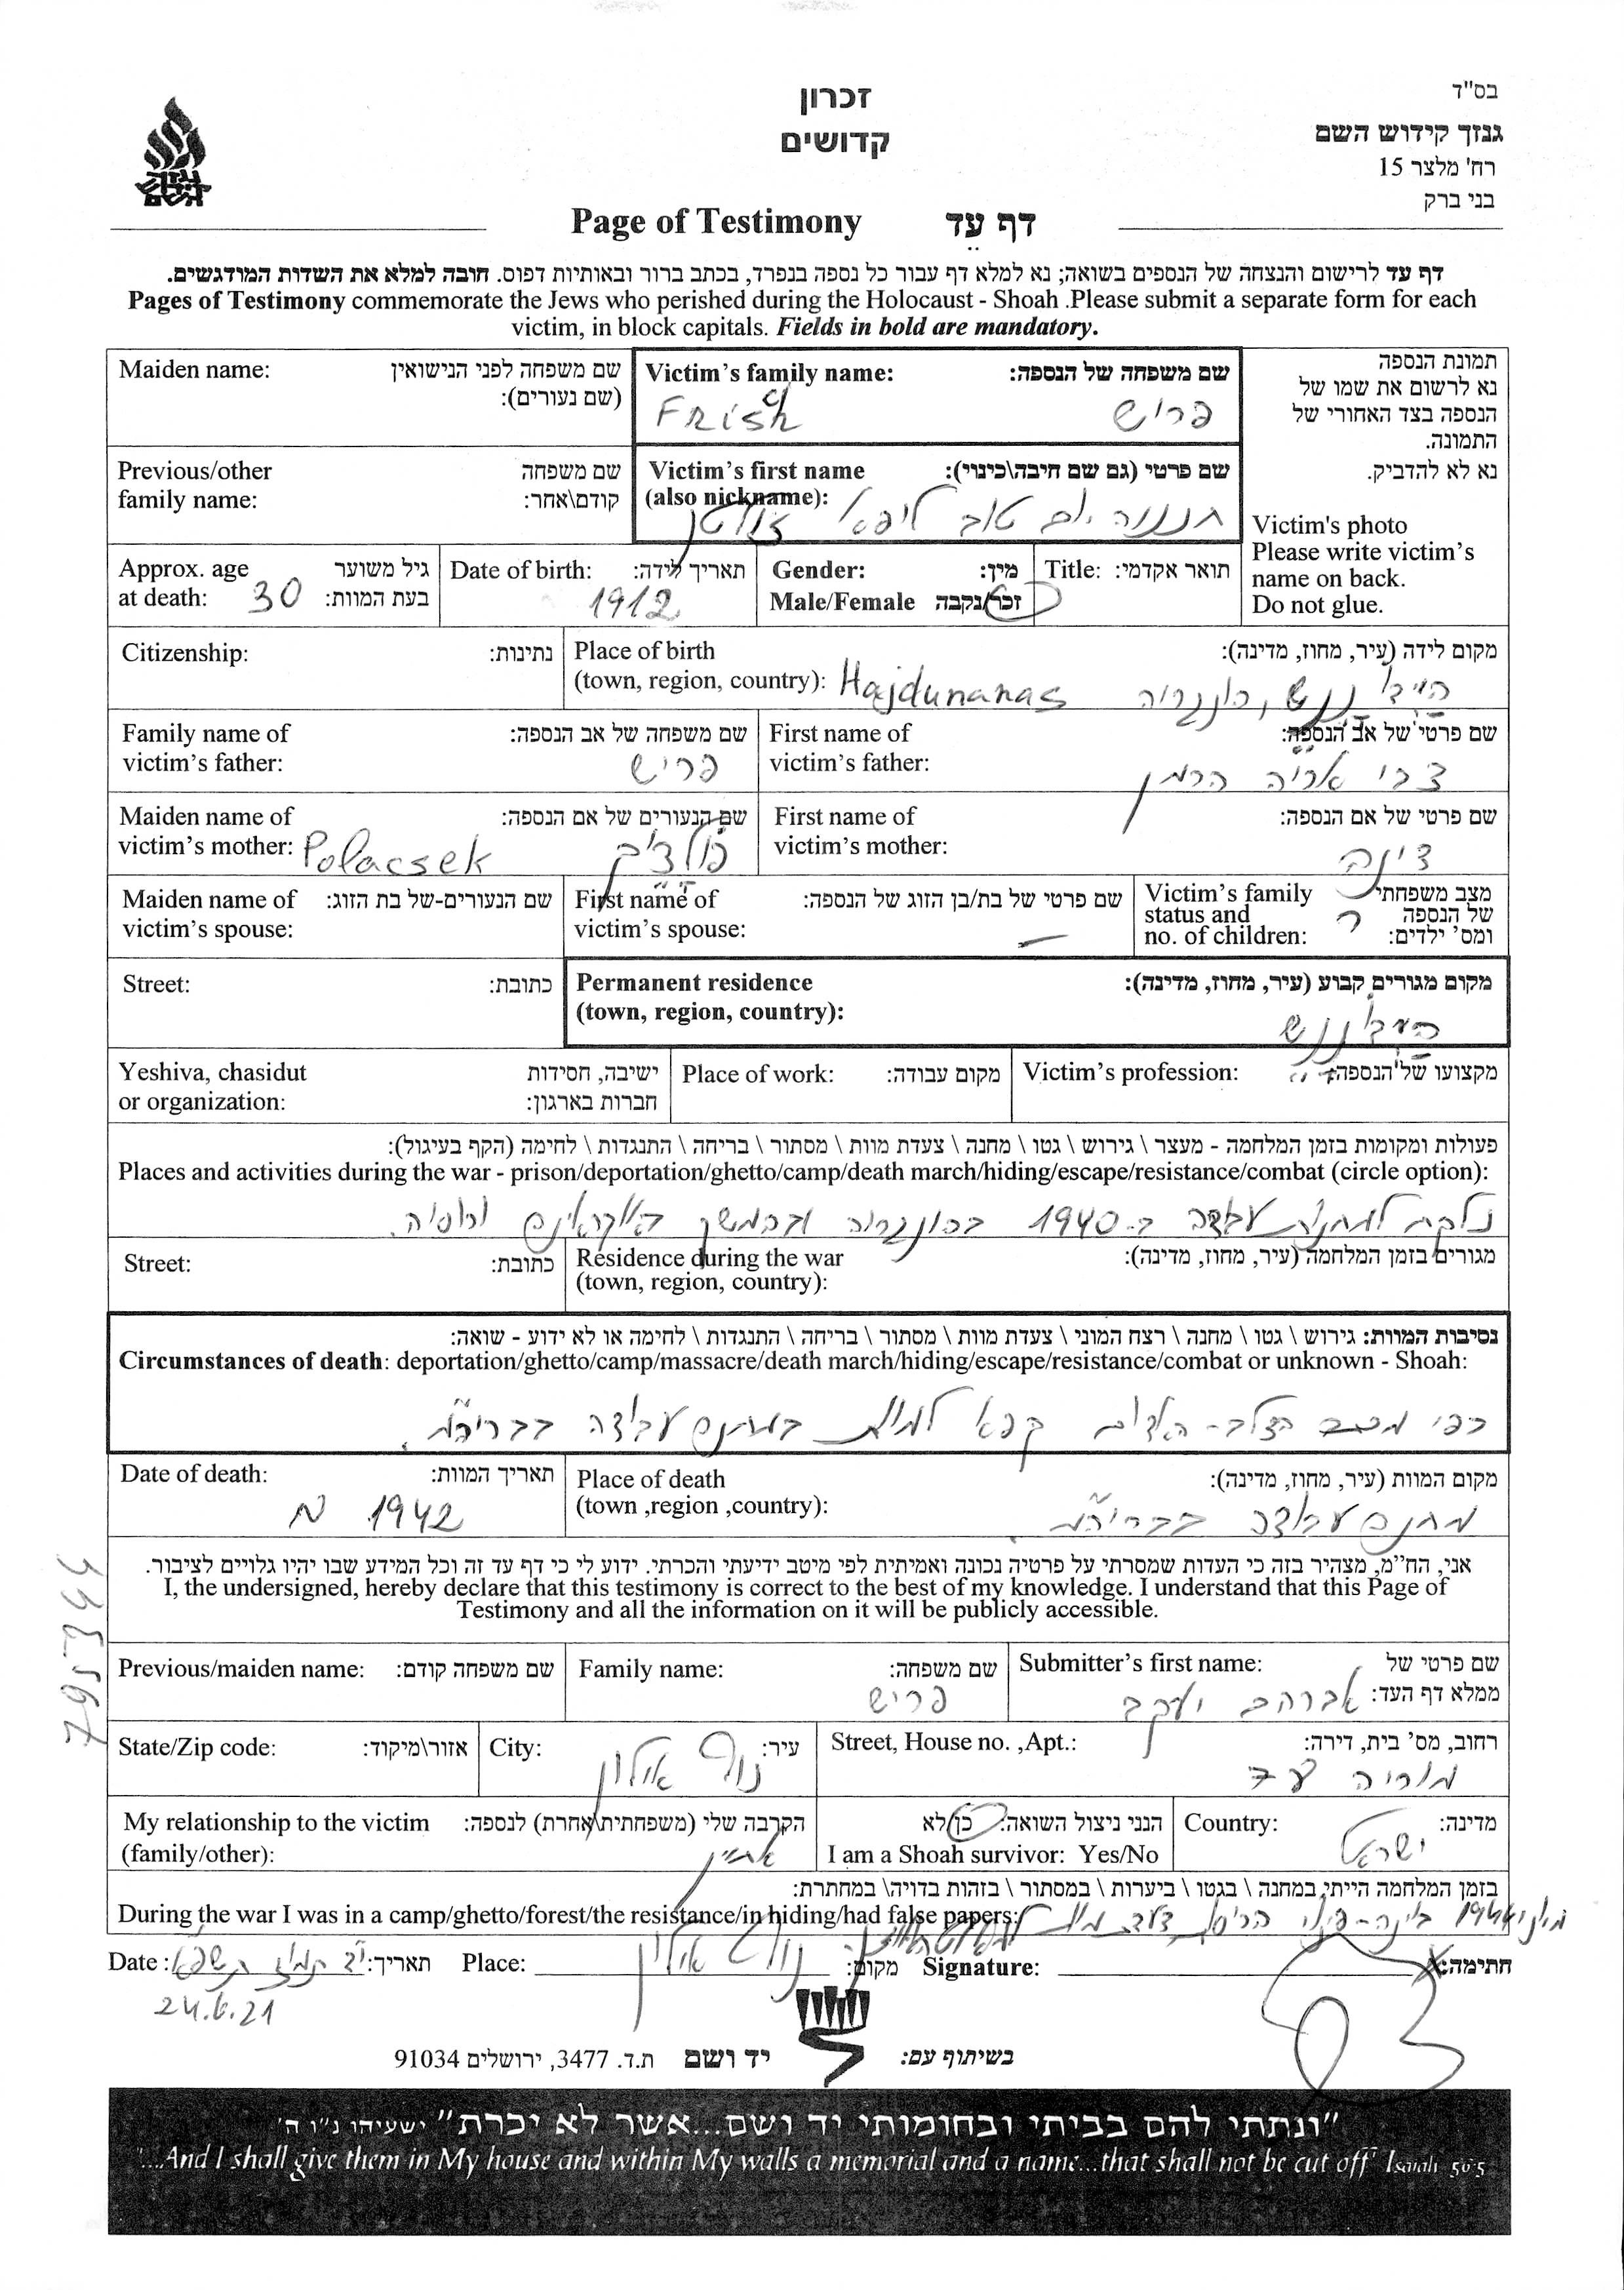 בס"ד
זכרון
קדושים
גנזך קידוש השם
רח' מלצר 15
בני ברק
גנזך קידוש השם
Page of Testimony דף עד
דף עד לרישום והנצחה של הנספים בשואה; נא למלא דף עבור כל נספה בנפרד, בכתב ברור ובאותיות דפוס. חובה למלא את השדות המודגשים.
Pages of Testimony commemorate the Jews who perished during the Holocaust - Shoah .Please submit a separate form for each
victim, in block capitals. Fields in bold are mandatory.
תמונת הנספה
נא לרשום את שמו של
הנספה בצד האחורי של
התמונה.
נא לא להדביק.
Victim's photo
Please write victim's
name on back.
Do not glue.
Victim's family name: שם משפחה של הנספה:
Frisch פריש
Maiden name: שם משפחה לפני הנישואין
(שם נעורים):
Victim's first name שם פרטי (גם שם חיבה\כינוי):
(also nickname):
חנניה יום טוב ליפא זולטן
Previous/other שם משפחה
family name: קודם\אחר:
Title: תואר אקדמי:
Gender: מין:
Male/Female זכר/נקבה
Date of birth: תאריך לידה:
1912
Approx. age גיל משוער
at death: 30 בעת המוות:
Place of birth מקום לידה (עיר, מחוז, מדינה):
(town, region, country): Hajdunanas היידו ננש, הונגריה
Citizenship: נתינות:
First name of שם פרטי של אב הנספה:
victim's father: צבי אריה הרמן
Family name of שם משפחה של אב הנספה:
victim's father: פריש
First name of שם פרטי של אם הנספה:
victim's mother: דינה
Maiden name of שם הנעורים של אם הנספה:
victim's mother: Polacsek פולצ'ק
Victim's family מצב משפחתי
status and של הנספה
no. of children: ומס' ילדים:
First name of שם פרטי של בת/בן הזוג של הנספה:
victim's spouse: –
Maiden name of שם הנעורים-של בת הזוג:
victim's spouse:
Permanent residence מקום מגורים קבוע (עיר, מחוז, מדינה):
(town, region, country):
היידו ננש
Street: כתובת:
Victim's profession: מקצועו של הנספה:
Place of work: מקום עבודה:
Yeshiva, chasidut ישיבה, חסידות
or organization: חברות בארגון:
פעולות ומקומות בזמן המלחמה - מעצר \ גירוש \ גטו \ מחנה \ צעדת מוות \ מסתור \ בריחה \ התנגדות \ לחימה (הקף בעיגול):
Places and activities during the war - prison/deportation/ghetto/camp/death march/hiding/escape/resistance/combat (circle option):
נלקח למחנות עבודה ב-1940 בהונגריה ובהמשך באוקראינה ורוסיה.
Residence during the war מגורים בזמן המלחמה (עיר, מחוז, מדינה):
(town, region, country):
Street: כתובת:
נסיבות המוות: גירוש \ גטו \ מחנה \ רצח המוני \ צעדת מוות \ מסתור \ בריחה \ התנגדות \ לחימה או לא ידוע - שואה:
Circumstances of death: deportation/ghetto/camp/massacre/death march/hiding/escape/resistance/combat or unknown - Shoah:
כפי מכתב הצלב-האדום קפא למות במחנה עבודה בבריה"מ.
Place of death מקום המוות (עיר, מחוז, מדינה):
(town ,region ,country):
מחנה עבודה בבריה"מ.
Date of death: תאריך המוות:
1942
אני, הח"מ, מצהיר בזה כי העדות שמסרתי על פרטיה נכונה ואמיתית לפי מיטב ידיעתי והכרתי. ידוע לי כי דף עד זה וכל המידע שבו יהיו גלויים לציבור.
I, the undersigned, hereby declare that this testimony is correct to the best of my knowledge. I understand that this Page of
Testimony and all the information on it will be publicly accessible.
795344
Submitter's first name: שם פרטי של
ממלא דף העד: אברהם יעקב
Family name: שם משפחה:
פריש
Previous/maiden name: שם משפחה קודם:
Street, House no. ,Apt.: רחוב, מס' בית, דירה:
מוריה
City: עיר:
נוף אילון
State/Zip code: אזור\מיקוד:
Country: מדינה:
ישראל
הנני ניצול השואה: כן/לא
I am a Shoah survivor: Yes/No
My relationship to the victim הקרבה שלי (משפחתית\אחרת) לנספה:
(family/other): אחיין
בזמן המלחמה הייתי במחנה \ בגטו \ ביערות \ במסתור \ בזהות בדויה\ במחתרת:
During the war I was in a camp/ghetto/forest/the resistance/in hiding/had false papers:
Date: י"ד תמוז תשפ"א תאריך: Place: נוף אילון מקום: Signature: חתימה:
24.6.21
בשיתוף עם: יד ושם ת.ד. 3477, ירושלים 91034
"ונתתי להם בביתי ובחומותי יד ושם...אשר לא יכרת" ישעיהו נ"ו ה'
"...And I shall give them in My house and within My walls a memorial and a name...that shall not be cut off" Isaiah 56:5